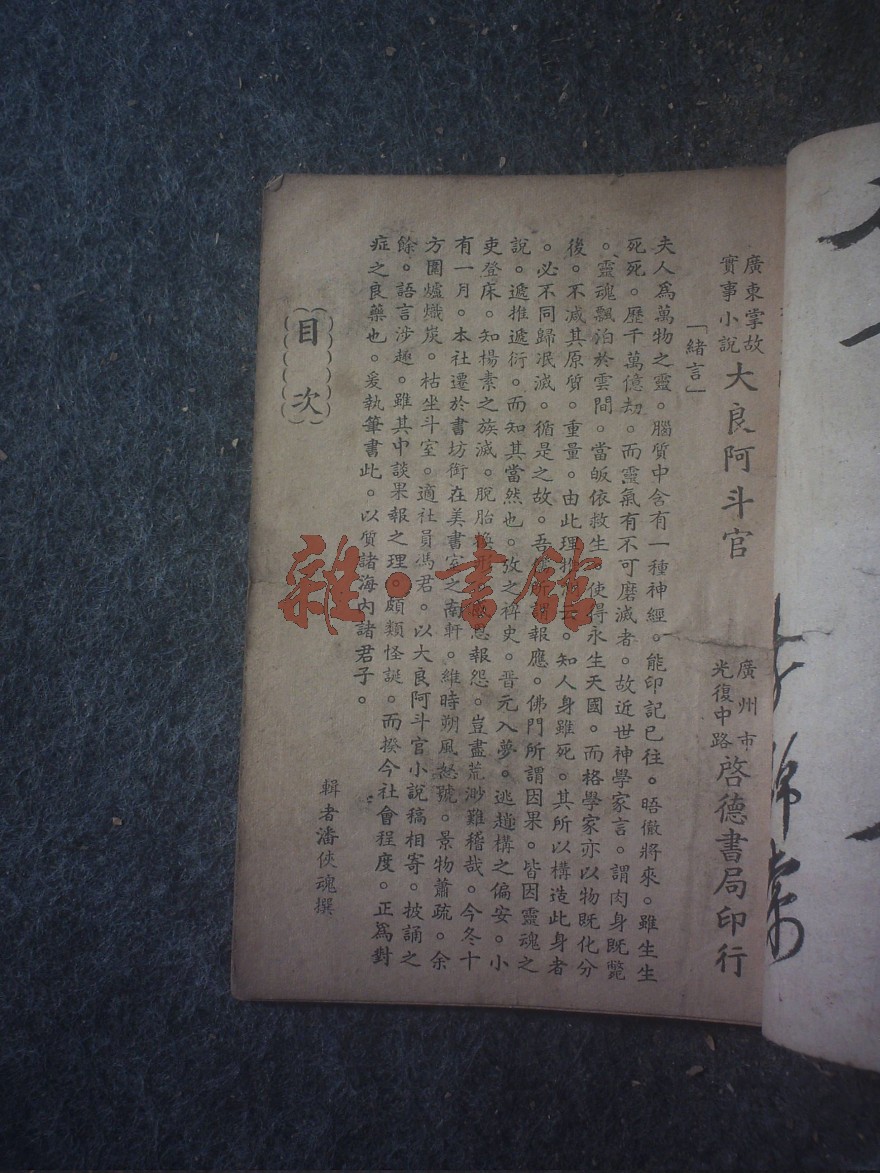 廣東掌故
實事小說
大良阿斗官
廣州市
光復中路
啓德書局印行
「緒言」
夫人爲萬物之靈。腦質中含有一種神經。能印記已往。晤徹將來。雖生生
死死。歷千萬億劫。而靈氣有不可磨滅者。故近世神學家言。謂肉身既斃
。靈魂飄泊於雲間。當皈依救生 使得永生天國。而格學家亦以物既化分
後。不滅其原質。重量。由此理 知人身雖死。其所以構造此身者
。必不同歸泯滅。循是之故。吾 所謂報應。佛門所謂因果。皆因靈魂之
說。遞推遞衍。而知其當然也。攷之稗史。晋元入夢。逃趙構之偏安。小
吏登床。知楊素之族滅。脫胎換 恩報怨。豈盡荒渺難稽哉。今冬十
有一月。本社遷於書坊街在美書室之南軒。維時朔風怒號。景物蕭疏。余
方圍爐熾炭。枯坐斗室。適社員馮君。以大良阿斗官小說稿相寄。披誦之
餘。語言涉趣。雖其中談果報之理。頗類怪誕。而揆今社會程度。正爲對
症之良藥也。爰執筆書此。以質諸海內諸君子。
輯者潘俠魂撰
目次
雜·書館